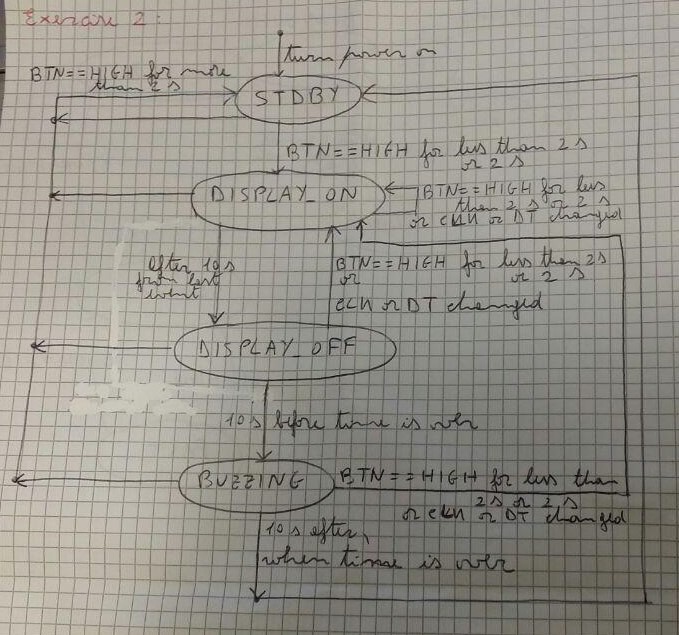 Exercise 2:
turn power on
BTN==HIGH for more
than 2 s
STDBY
BTN==HIGH for less than 2 s
or 2 s
DISPLAY_ON
BTN==HIGH for less
than 2 s or 2 s
or CLK or DT changed
after 10 s
from last
event
BTN==HIGH for less than 2 s
or
or 2 s
CLK or DT changed
DISPLAY_OFF
10 s before time is over
BUZZING
BTN==HIGH for less than
2 s or 2 s
or CLK or DT changed
10 s after,
when time is over